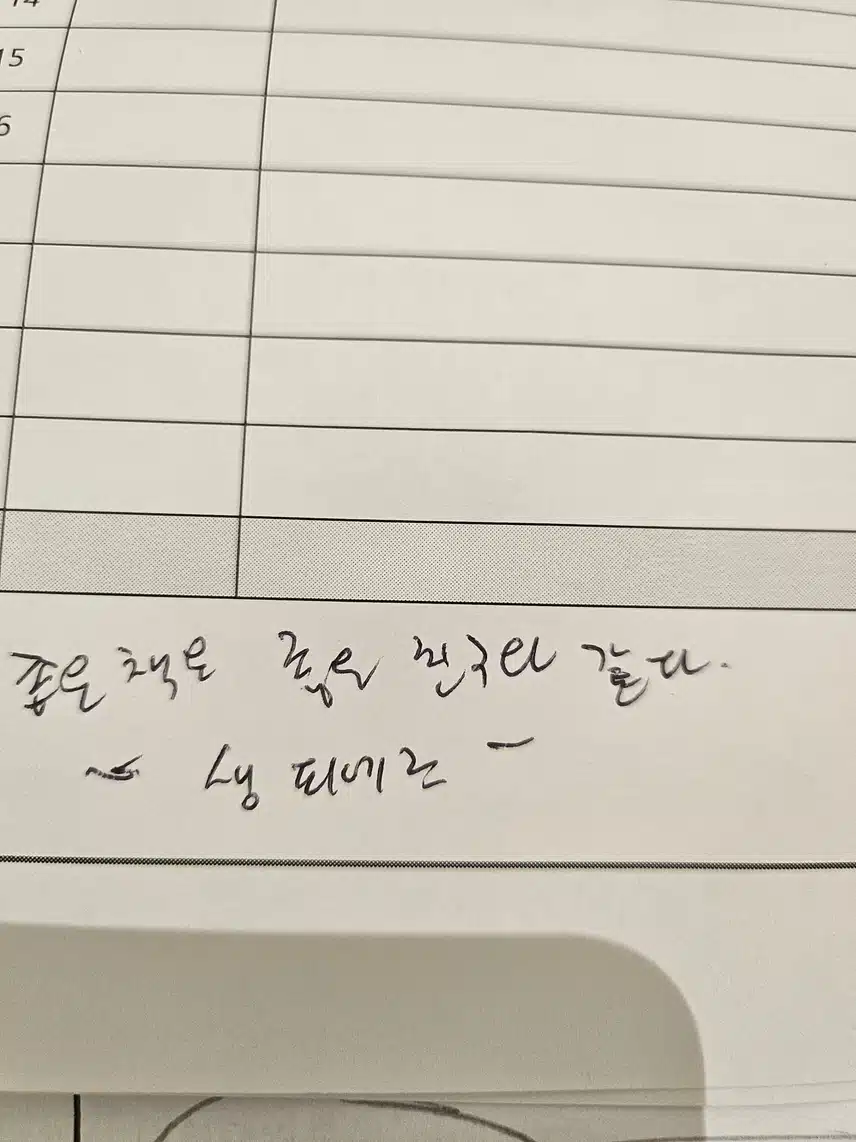 14
15
6
좋은 책은 좋은 친구와 같다.
- 생 피에르 -